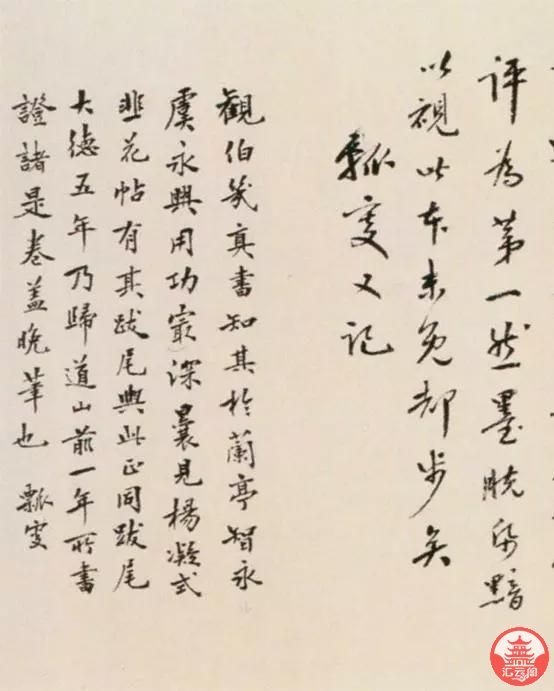 评为苐一然墨脱帋黯
以視此本未免却步矣
瓢叟又记
觀伯幾真書知其於蘭亭智永
虞永興用功宲深曩見楊凝式
韭花帖有其跋尾與此正同跋尾
大德五年乃歸道山前一年所書
證諸是卷蓋晚筆也 瓢叟
汇云阁